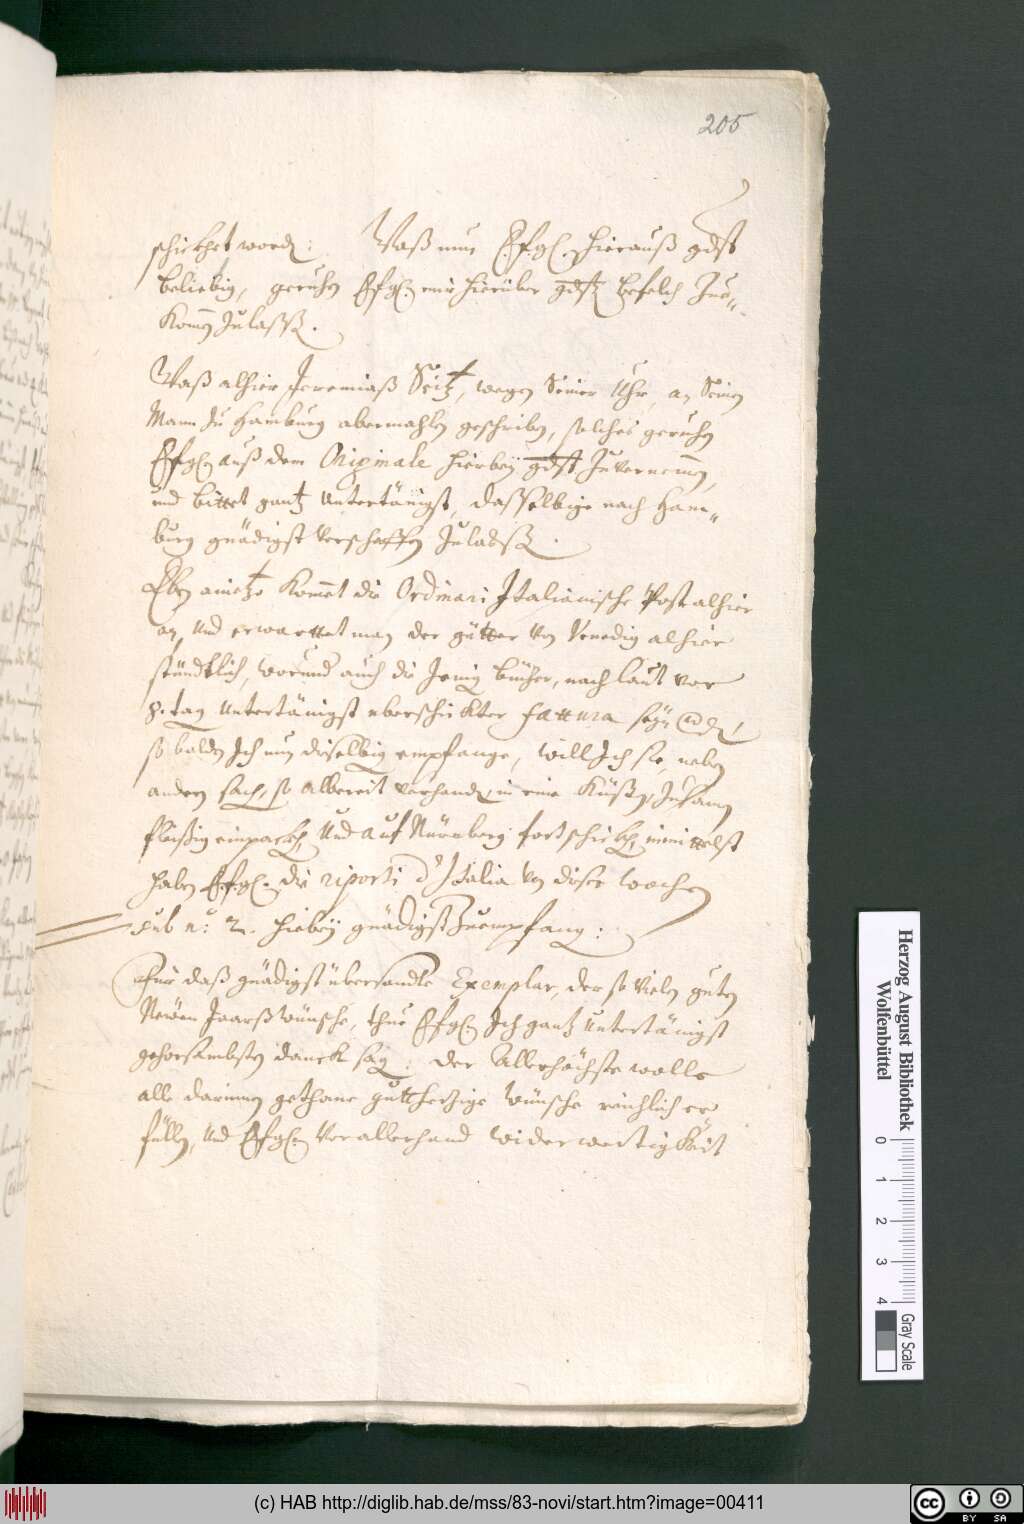 205
schickhet word: Waß nun E.f.g. hierauß gdst
beliebig, geruhen E.f.g. mir hierüber gdst befelch Zue-
komen Zulasß.
Waß alhier Jeremiaß Seitz, wegen Seiner Uhr, an Seinen
Mann Zu Hamburg abermahlen geschriben, solches geruhen
E.f.g. auß dem Originale hierbey gdst Zuvernemen,
und bittet gantz Untertänigst, dasselbige nach Ham-
burg gnädigst verschaffen Zulasß.
Eben anietzo kommet die Ordinari Italianische Post alhier
an, Und erwarttet man der gütter von Venedig alhier
stündtlich, worund auch die Jenig bücher, nach laut vor
8. tag Untertänigst uberschickter fattura
so balden Ich nun dieselbig empfange, will Ich sie, neben
andern sach, so albereit verhand, in eine Küsten Zusamen
fleißig einpackh, Und auf Nürnberg fortschickh, inmittelst
haben E.f.g. die riporti d'Italia von diser wochen
sub n: 2. hiebey gnädigst Zuempfang:
Für daß gnädigst übersandte Exemplar, der so vielen guten
Newen Jaarß wünsche, thue E.f.g. Ich gantz Untertänigst
gehorsambsten danck sag: der Allerhöchste wolle
alle darinnen gethane guttherzige wünsche reichlich er
füllen, Und E.f.g. vor allerhand widerwertigkeit
Herzog August Bibliothek
Wolfenbüttel
0 1 2 3 4
Gray Scale
(c) HAB http://diglib.hab.de/mss/83-novi/start.htm?image=00411
cc BY SA